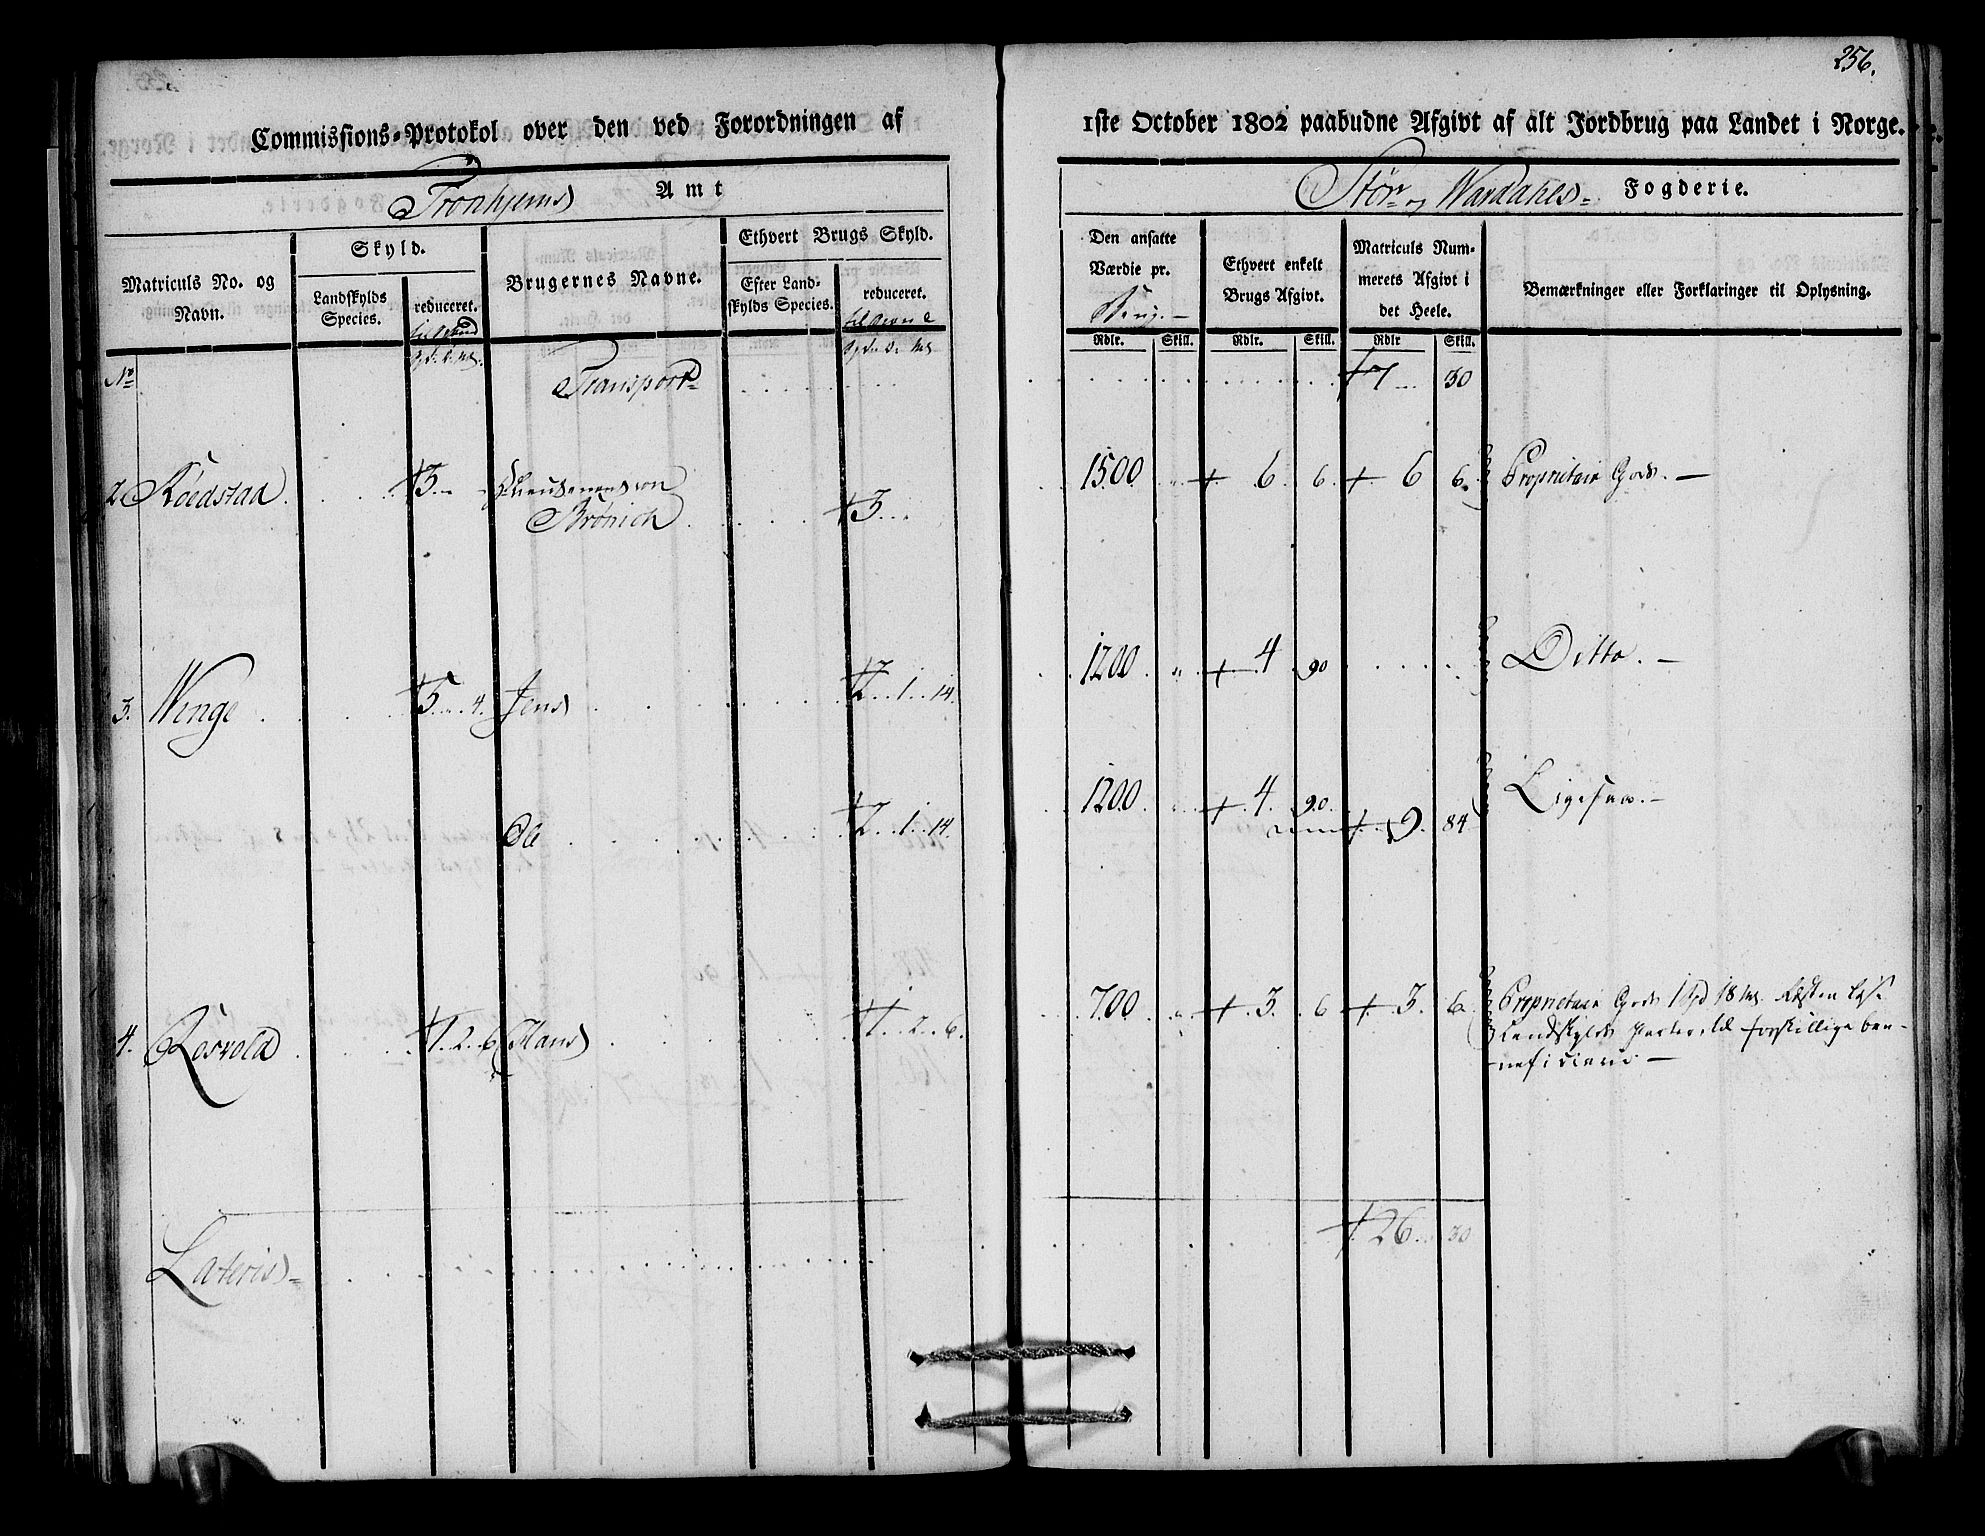 256.
Commissions-Protokol over den ved Forordningen af
1ste October 1802 paabudne Afgivt af alt Jordbrug paa Landet i Norge.
Tronhjems Amt
Stør- og Wærdahls- Fogderie.
Matriculs No. og Navn.
Skyld.
Landskylds Species.
reduceret.
Brugernes Navne.
Ethvert Brugs Skyld.
Efter Landskylds Species.
reduceret.
Den ansatte Værdie pr. Brug.-
Ethvert enkelt Brugs Afgivt.
Matriculs Nummerets Afgivt i det Heele.
Bemærkninger eller Forklaringer til Oplysning.
Rdlr. Skill. Rdlr. Skill. Rdlr Skill.
No Transport- 7 30
2. 3 3 1500 6 6 6 6 Proprietair Gods. -
Brønich
3. Winge 5 4. Jens 2 1 14. 1200 4 90 Ditto. -
Ole 2 1 14. 1200 4 90 9. 84 Ligesaa. -
4. Rosvold 1 2 6 Hans 1 2 6. 700 3 6 3 6 Proprietair Gods 1 18
Landskylds forskillige ben-
neficiere -
Lateris- 26 30